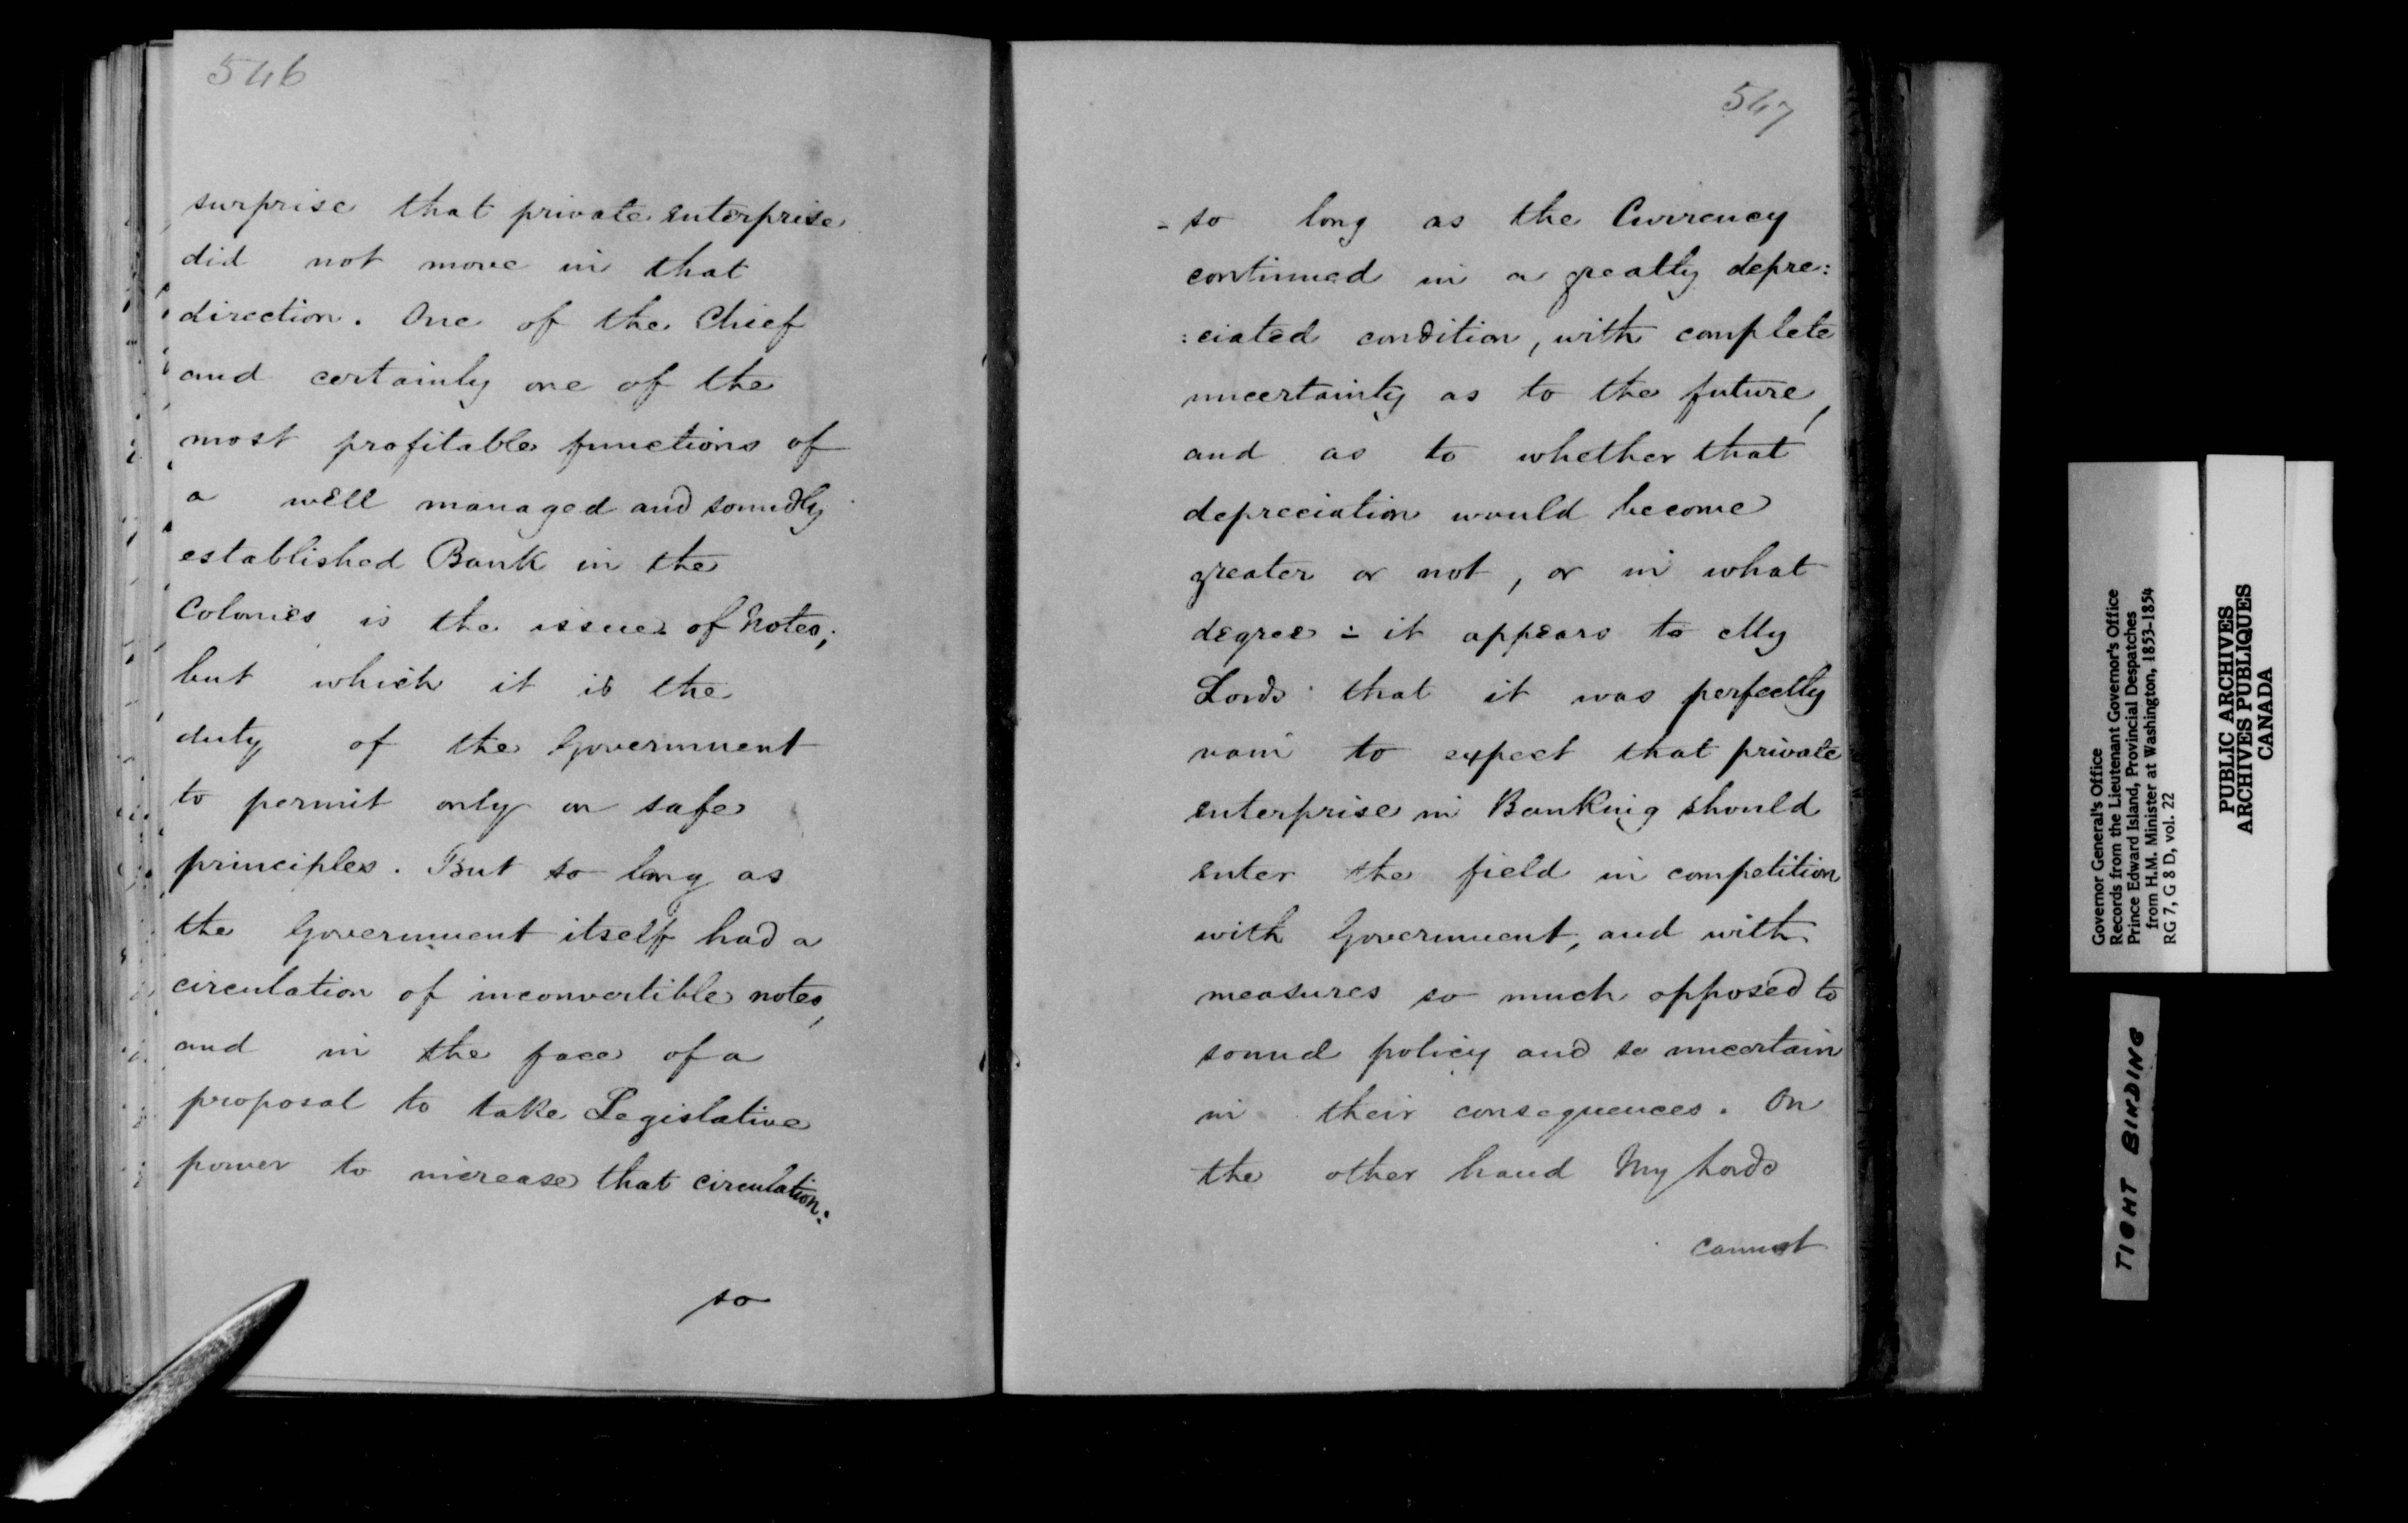 546
surprise that private enterprise
did not move in that
direction. One of the Chief
and certainly one of the
most profitable functions of
a well managed and soundly
established Bank in the
Colonies is the issue of Notes;
but which it is the
duty of the Government
to permit only on safe
principles. But so long as
the Government itself had a
circulation of inconvertible notes,
and in the face of a
proposal to take Legislative
power to increase that circulation:
so
547
- so long as the Currency
continued in a greatly depre:
:ciated condition, with complete
uncertainty as to the future,
and as to whether that
depreciation would become
greater or not, or in what
degree :- it appears to My
Lords that it was perfectly
vain to expect that private
enterprise in Banking should
enter the field in competition
with Government, and with
measures so much opposed to
sound policy and so uncertain
in their consequences. On
the other hand My Lords
cannot
Governor General's Office
Records from the Lieutenant Governor's Office
Prince Edward Island, Provincial Despatches
from H.M. Minister at Washington, 1853-1854
RG 7, G 8 D, vol. 22
PUBLIC ARCHIVES
ARCHIVES PUBLIQUES
CANADA
TIGHT BINDING